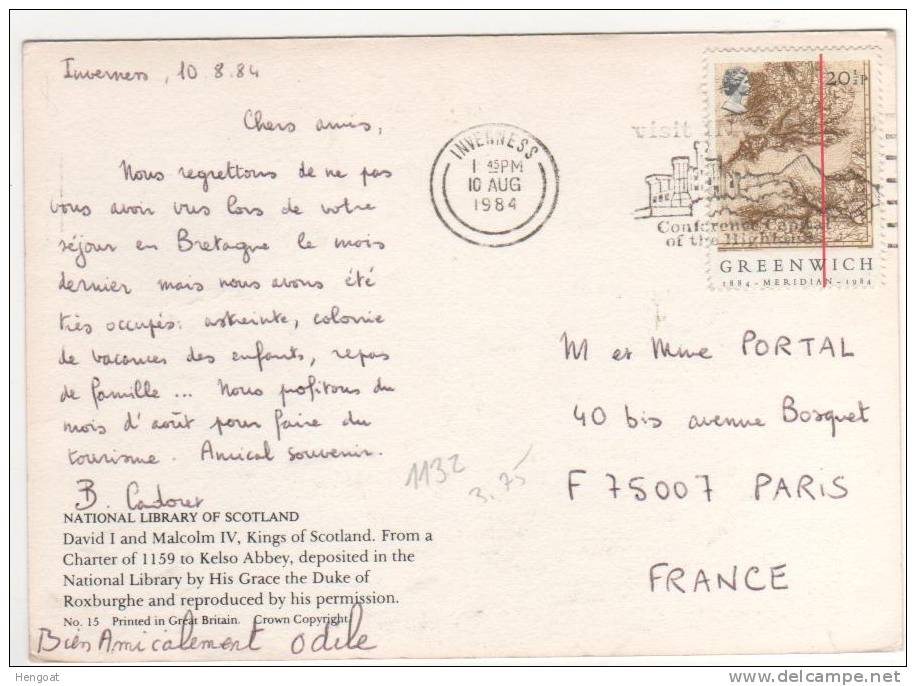 Inverness, 10.8.84
Chers amis,
Nous regrettons de ne pas
vous avoir vus lors de votre
séjour en Bretagne le mois
dernier mais nous avons été
très occupés: astreinte, colonie
de vacances des enfants, repas
de famille ... Nous profitons du
mois d'août pour faire du
tourisme. Amical souvenir.
B. Cadoret
NATIONAL LIBRARY OF SCOTLAND
David I and Malcolm IV, Kings of Scotland. From a
Charter of 1159 to Kelso Abbey, deposited in the
National Library by His Grace the Duke of
Roxburghe and reproduced by his permission.
No. 15 Printed in Great Britain. Crown Copyright.
Bien Amicalement Odile
INVERNESS
1 45PM
10 AUG
1984
visit
Conference Capital
of the
20½P
GREENWICH
1884 - MERIDIAN - 1984
M et Mme PORTAL
40 bis avenue Bosquet
F 75007 PARIS
FRANCE
1132
3.75
Hengoat
delcampe.net